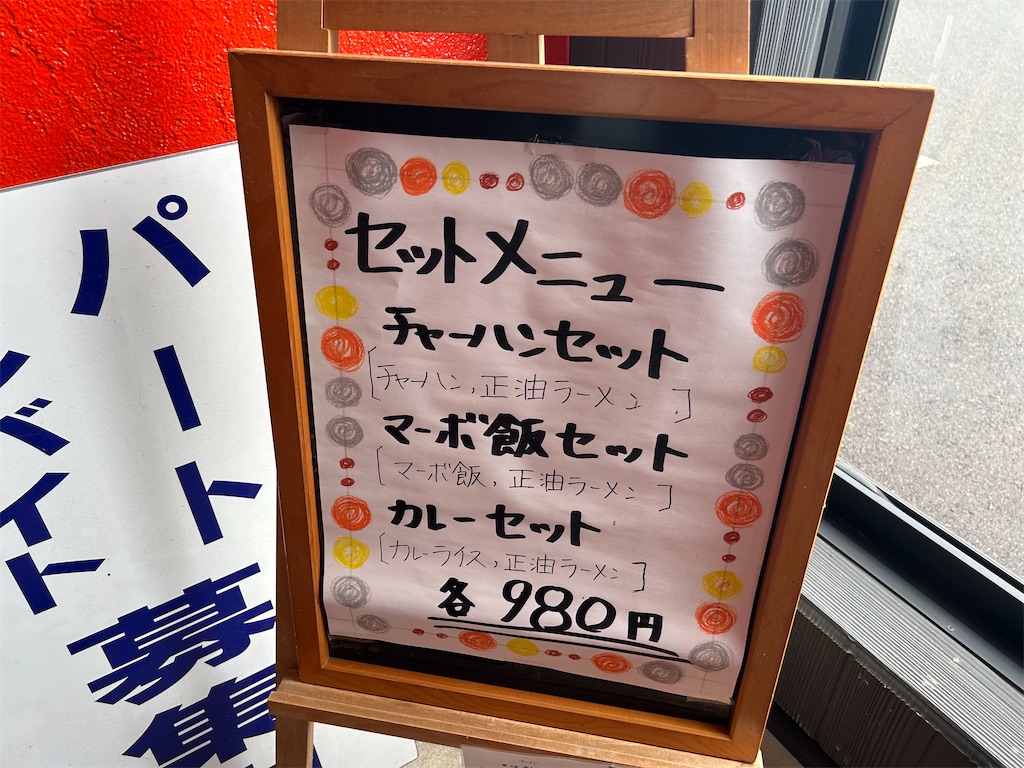 セットメニュー
チャーハンセット
[チャーハン,正油ラーメン]
マーボ飯セット
[マーボ飯,正油ラーメン]
カレーセット
[カレーライス,正油ラーメン]
各980円
パート募集
バイト